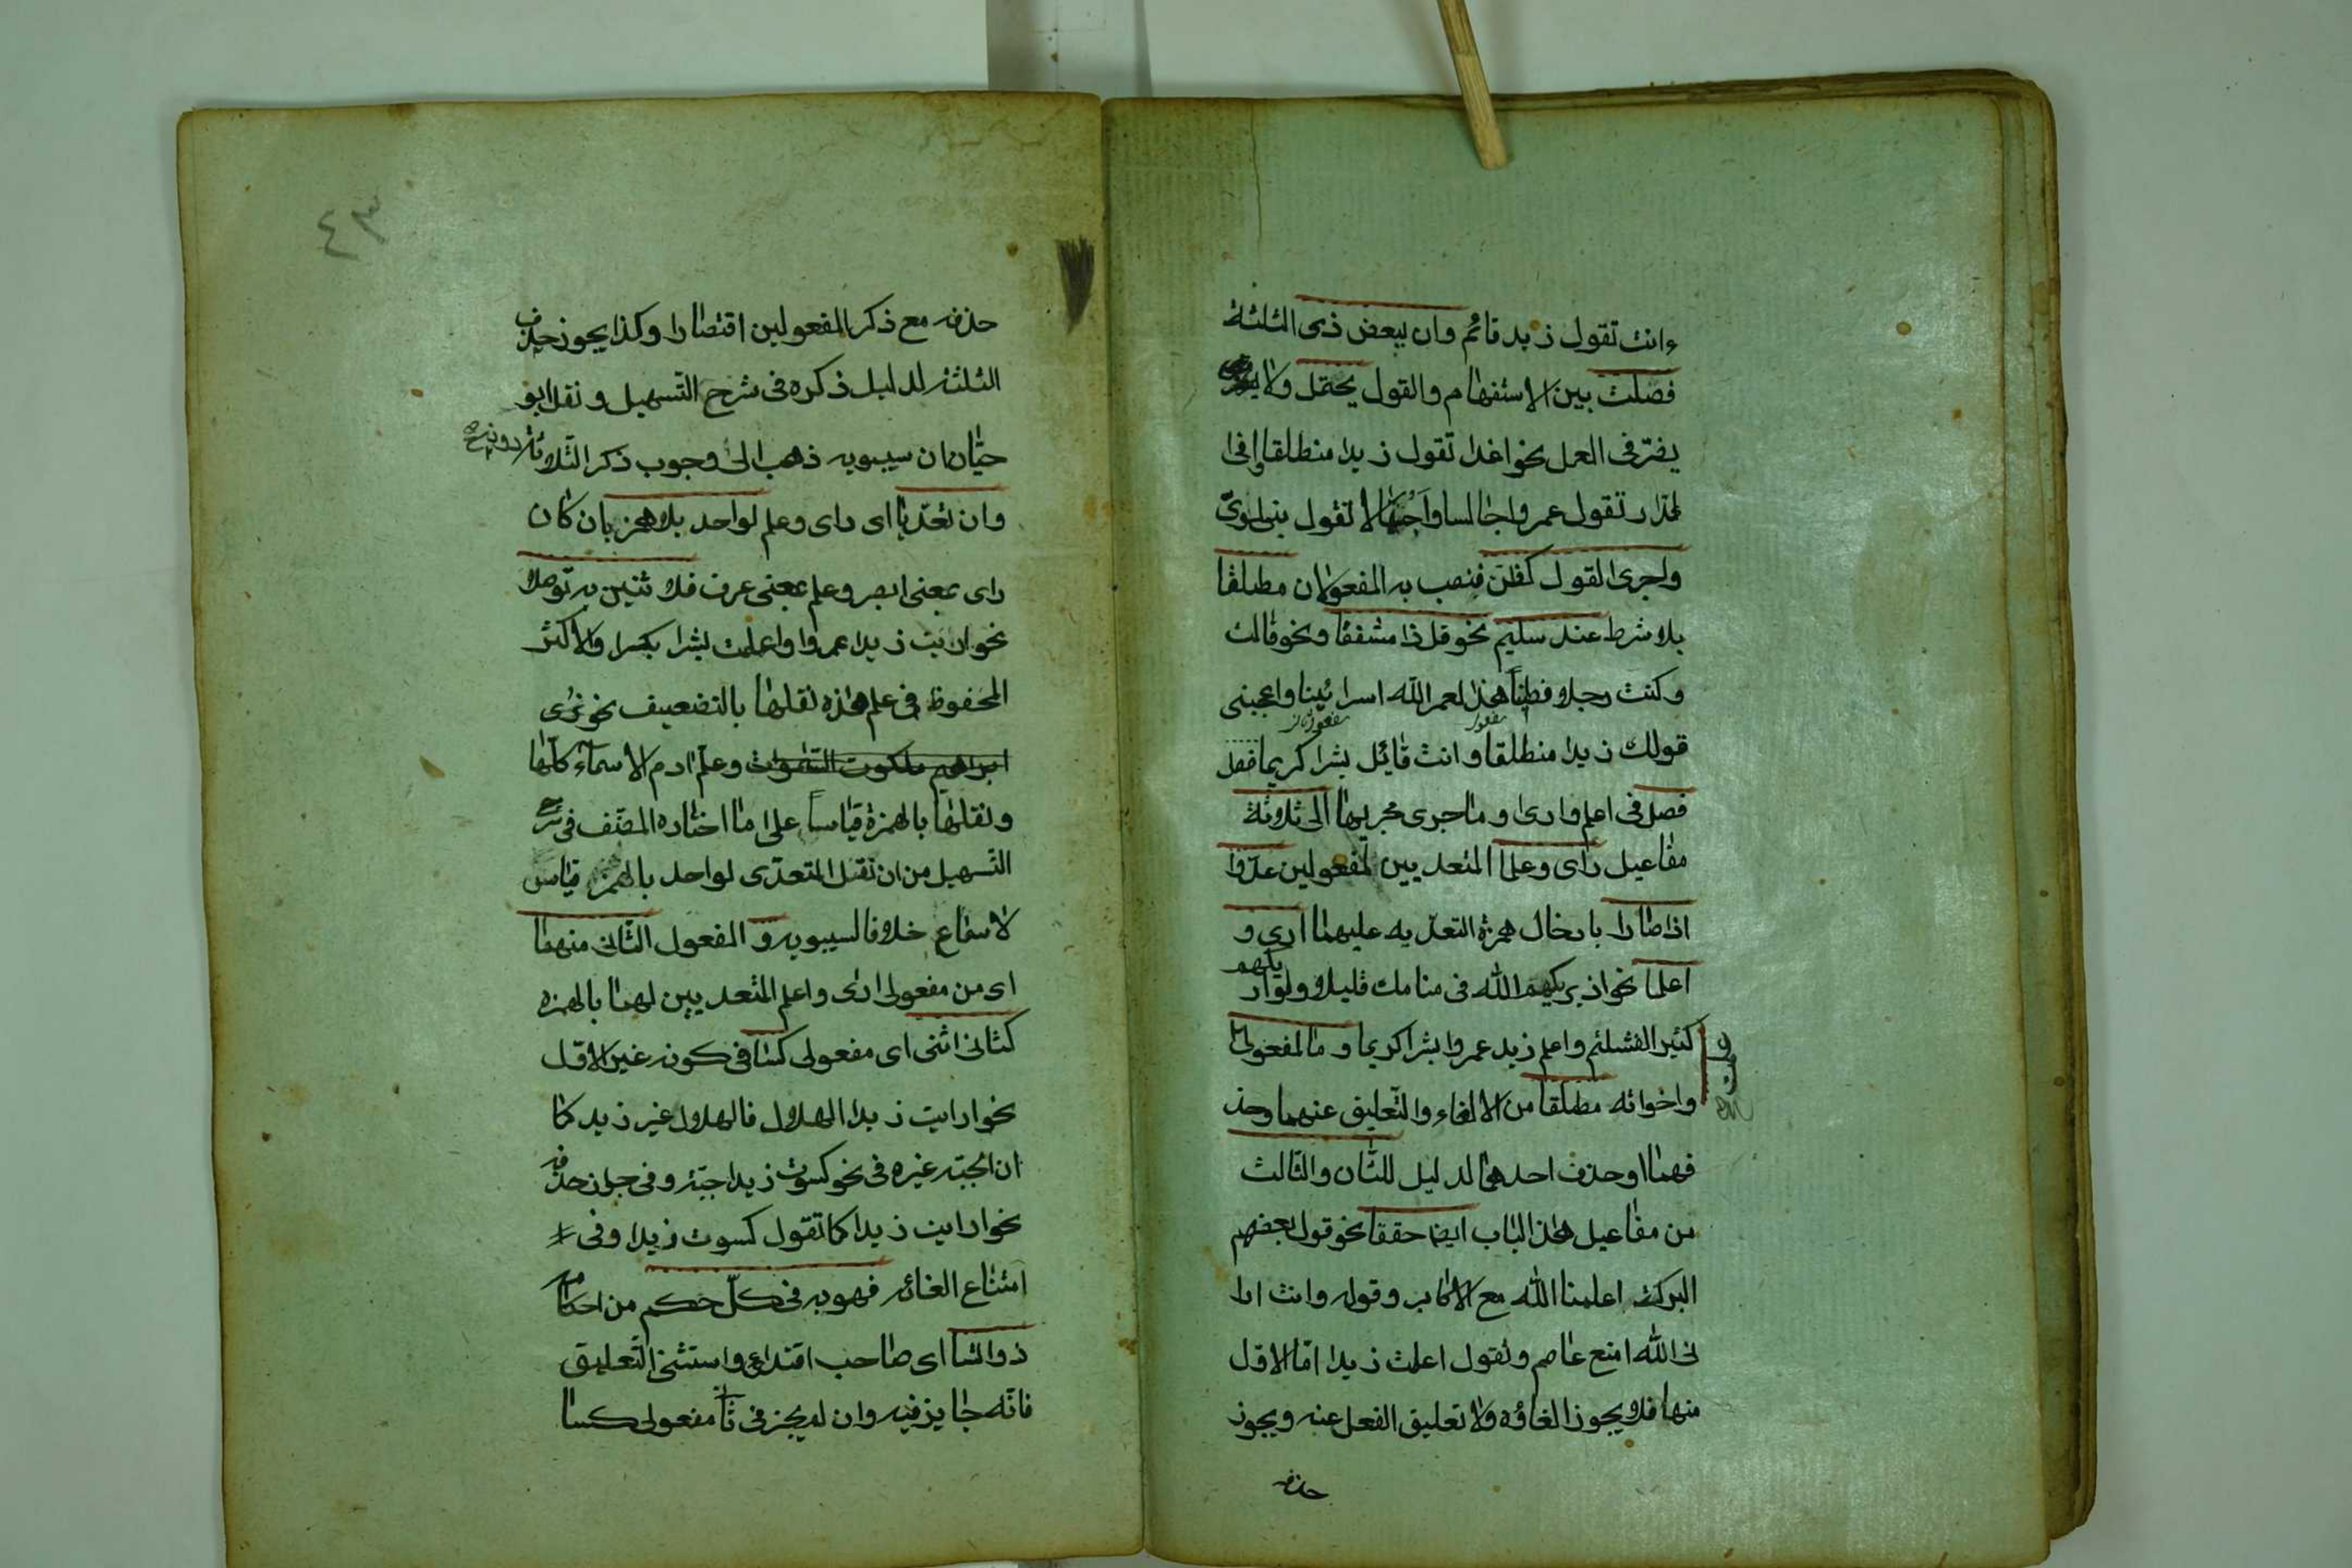 ءانت تقول زيد قائم وان ببعض ذى الثلثة
فصلت بين الاستفهام والقول يحتمل ولا
يضر فى العمل نحو اغدا تقول زيدا منطلقا وافى
الدار تقول عمروا جالسا وأجهالا تقول بنى لؤىّ
واجرى القول كظن فنصب به المفعولان مطلقا
بلا شرط عند سليم نحو قل ذا مشفقا ونحو قالت
وكنت رجلا فطينا هذا لعمر الله اسرائينا واعجبنى
قولك زيدا منطلقا وانت قائل بشرا كريما فصل
فصل فى اعلم وارى وما جرى مجريهما الى ثلاثة
مفاعيل راى وعلما المتعديين لمفعولين عدّوا
اذا صارا بادخال همزة التعديه عليهما ارى و
اعلما نحو اذ يريكهم الله فى منامك قليلا ولو ار
يكهم
كثيرا لفشلتم واعلم زيد عمروا بشرا كريما وما لمفعولى
واخواته مطلقا من الالغاء والتعليق عنهما وحذ
فهما او حذف احدهما لدليل للثان والثالث
من مفاعيل هذا الباب ايضا حققا نحو قول بعضهم
البركة اعلمنا الله مع الاكابر وقوله وانت ارا
نى الله امنع عاصم وتقول اعلمت زيدا امّا الاول
منها فلا يجوز الغاؤه ولا تعليق الفعل عنه ويجوز
حذفه
٤٣
حذفه مع ذكر المفعولين اقتصارا وكذا يجوز حذف
الثلثة لدليل ذكره فى شرح التسهيل ونقل ابو
حيّان ان سيبويه ذهب الى وجوب ذكر الثلاثة دونه
وان تعدّيا اى راى وعلم لواحد بلا همز بان كان
راى بمعنى ابصر وعلم بمعنى عرف فلاثنين به توصلا
نحو اريت زيدا عمروا واعلمت بشرا بكرا والاكثر
المحفوظ فى علم هذه نقلها بالتضعيف نحو نرى
ابراهيم ملكوت السّموات وعلّم ادم الاسماء كلّها
ونقلها بالهمزة قياسا على ما اختاره المصنّف فى شرح
التّسهيل من ان نقل المتعدّى لواحد بالهمزة قياس
لا سماع خلافا لسيبويه و المفعول الثانى منهما
اى من مفعولى ارى واعلم المتعديين لهما بالهمزه
كثانى اثنى اى مفعولى كسا فى كونه غير الاول
نحو ارايت زيدا الهلال فالهلال غير زيد كما
ان الجبّة غيره فى نحو كسوت زيدا جبّة وفى جواز حذفه
نحو ارايت زيدا كما تقول كسوت زيدا وفى
امتناع الغائه فهو به فى كلّ حكم من احكامه
ذو ائتسا اى صاحب اقتداء واستثنى التّعليق
فانّه جايز فيه وان لم يجز فى ثانى مفعولى كسا